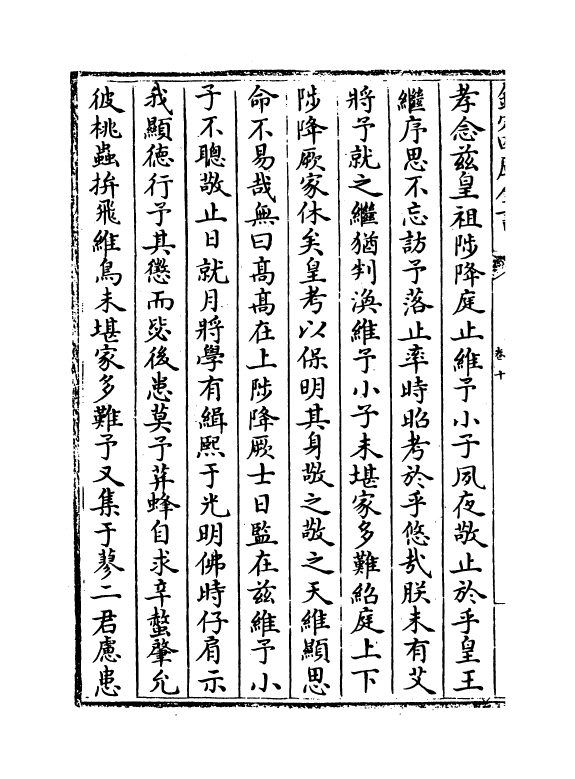 孝念兹皇祖陟降庭止維予小子夙夜敬止於乎皇王
繼序思不忘訪予落止率時昭考於乎悠哉朕未有艾
將予就之繼猶判渙維予小子未堪家多難紹庭上下
陟降厥家休矣皇考以保明其身敬之敬之天維顯思
命不易哉無曰髙髙在上陟降厥士日監在兹維予小
子不聰敬止日就月將學有緝熙于光明佛時仔肩示
我顯德行予其懲而毖後患莫予荓蜂自求辛螫肇允
彼桃蟲拚飛維鳥未堪家多難予又集于蓼二君慮患
卷十